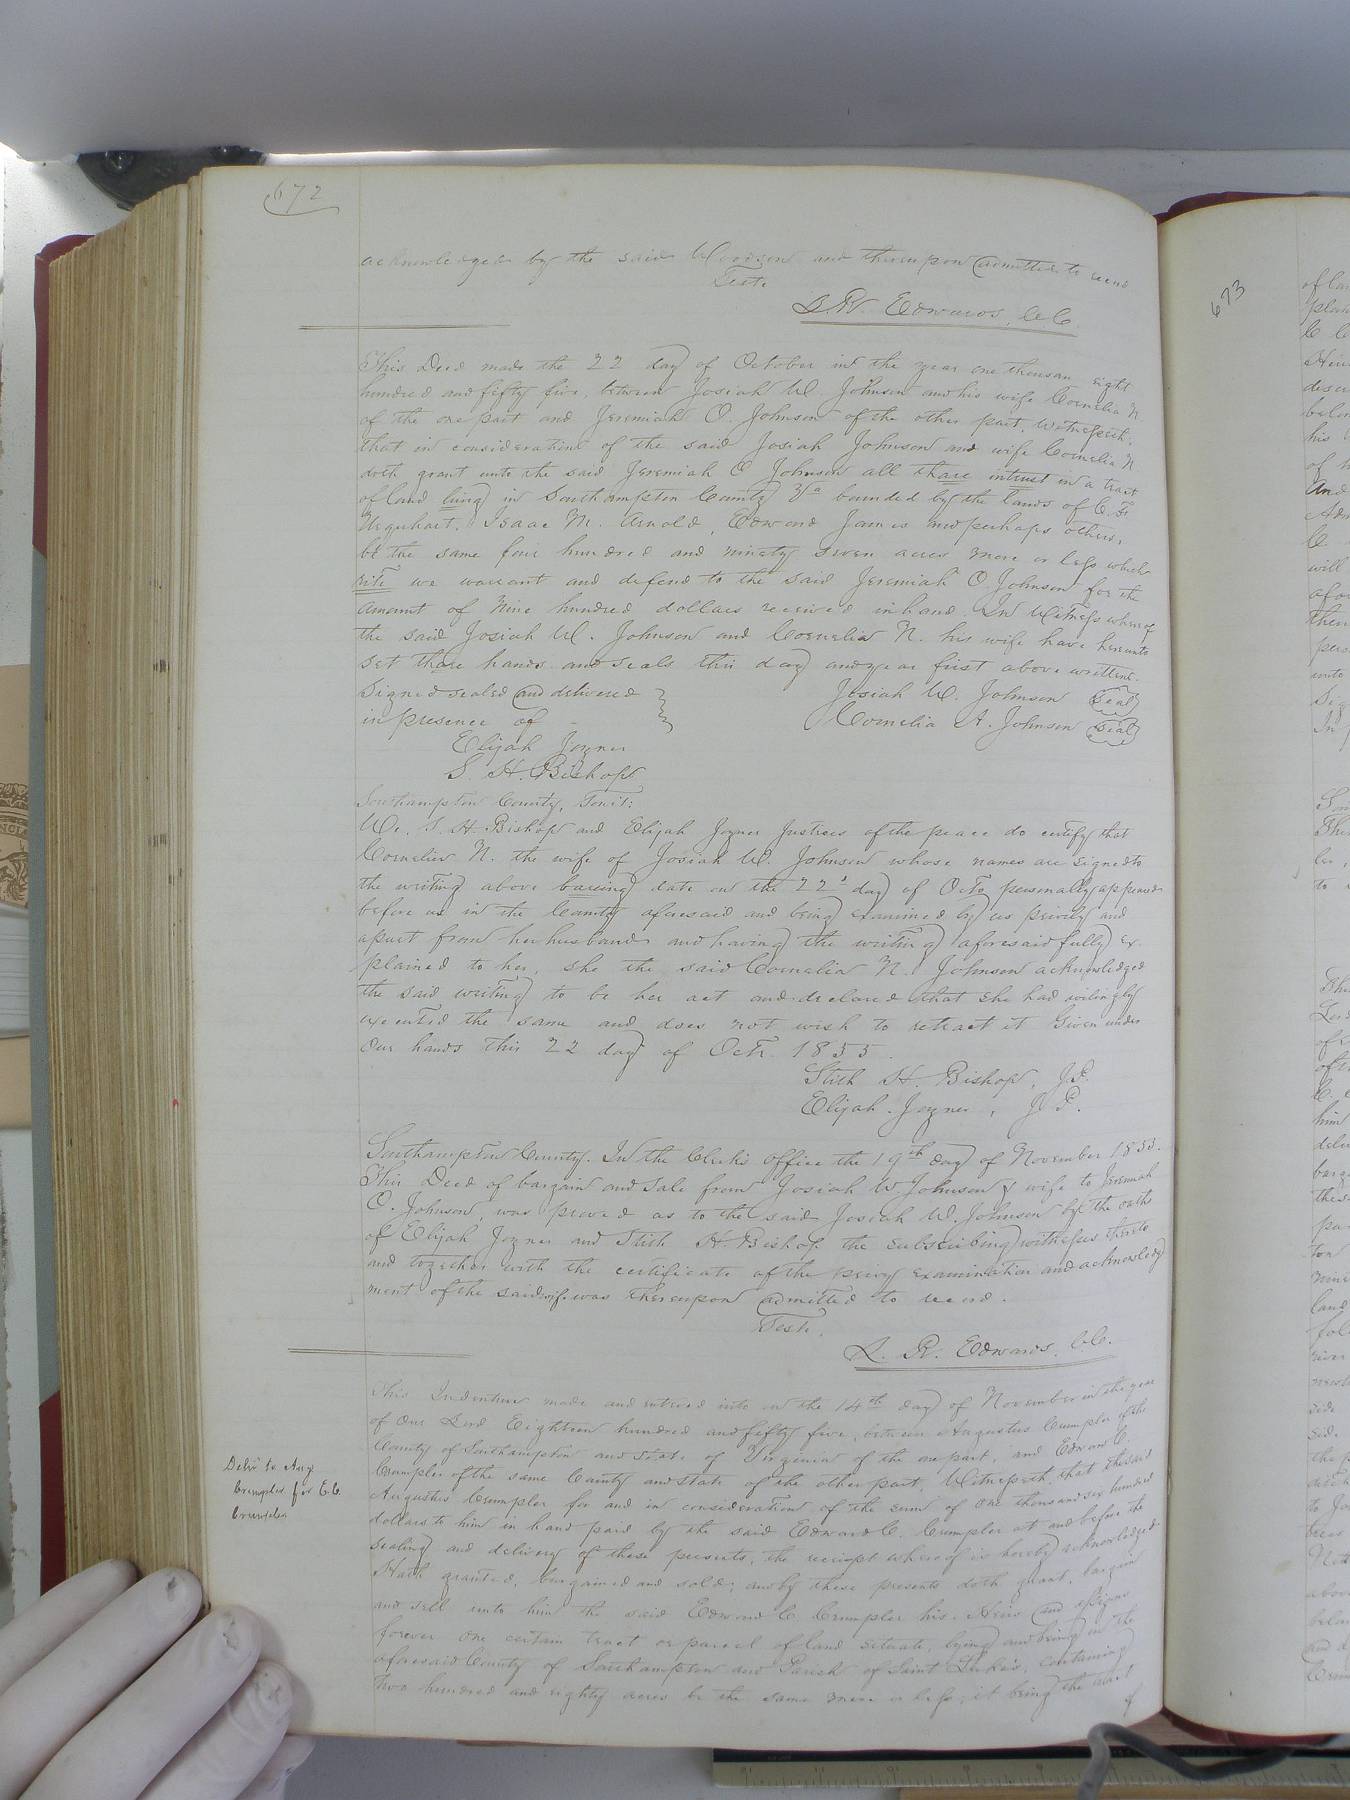 672
acknowledged by the said Woodson and thereupon admitted to record
Teste
L. R. Edwards, C. C.
This Deed made the 22 day of October in the year one thousan eight
hundred and fifty five, between Josiah W. Johnson and his wife Cornelia N
of the one part and Jeremiah O. Johnson of the other part, Witnesseth,
that in consideration of the said Josiah Johnson and wife Cornelia N
doth grant unto the said Jeremiah O Johnson all thare intrust in a tract
of land liing in Southampton County Va bounded by the lands of C. F.
Urquhart, Isaac M. Arnold, Edward James and perhaps others,
be the same four hundred and ninety seven acres more or less which
rite we warrant and defend to the said Jeremiah O. Johnson for the
amount of Nine hundred dollars received in hand. In Witness whereof
the said Josiah W. Johnson and Cornelia N. his wife have hereunto
set thare hands and seals this day and year first above written.
Signed sealed and delivered
in presence of
Josiah W. Johnson Seal
Cornelia A. Johnson Seal
Elijah Joyner
S. H. Bishop
Southampton County, Towit:
We, S. H. Bishop and Elijah Joyner Justices of the peace do certify that
Cornelia N. the wife of Josiah W. Johnson whose names are signed to
the writing above bareing date on the 22d day of Octo personally appeared
before us in the County aforesaid and being examined by us privily and
apart from her husband and having the writing aforesaid fully ex-
plained to her, she the said Cornelia N. Johnson acknowledged
the said writing to be her act and declared that she had wilingly
executed the same and does not wish to retract it Given under
our hands this 22 day of Octr. 1855.
Stith H. Bishop, J.P.
Elijah Joyner, J.P.
Southampton County. In the Clerk's office the 19th day of November 1855.
This Deed of bargain and sale from Josiah W. Johnson & wife to Jeremiah
O. Johnson, was proved as to the said Josiah W. Johnson by the oaths
of Elijah Joyner and Stith H. Bishop the subscribing witnesses thereto
and together with the certificate of the privy examination and acknowledg
ment of the said wife was thereupon admitted to record.
Teste.
L. R. Edwards, C. C.
This Indenture made and entered into on the 14th day of November in the year
of Our Lord Eighteen hundred and fifty five, between Augustus Crumpler of the
County of Southampton and State of Virginia of the one part, and Edward C.
Crumpler of the same County and State of the other part, Witnesseth, that the said
Augustus Crumpler for and in consideration of the sum of One thousand six hundred
dollars to him in hand paid by the said Edward C. Crumpler at and before the
sealing and delivery of these presents, the receipt whereof is hereby acknowledged
Hath granted, bargained and sold; and by these presents doth grant, bargain
and sell unto him the said Edward C. Crumpler his Heirs and assigns
forever one certain tract or parcel of land situate, lying and being in the
aforesaid County of Southampton and Parish of Saint Luke's, containing
two hundred and eighty acres be the same more or less, it being the tract
of
Delv'd to Aug
Crumpler for E. C.
Crumpler
673